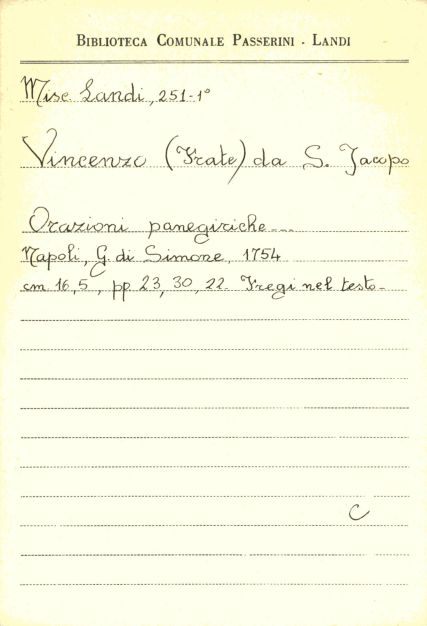 BIBLIOTECA COMUNALE PASSERINI - LANDI
Misc. Landi, 251-1°
Vincenzo (Frate) da S. Jacopo
Orazioni panegiriche...
Napoli, G. di Simone, 1754
cm 16,5, pp. 23, 30, 22. Fregi nel testo-
C